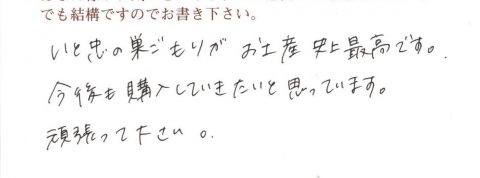 でも結構ですのでお書き下さい。
いと忠の巣ごもりが お土産 史上 最高です。
今後も購入していきたいと思っています。
頑張って下さい。